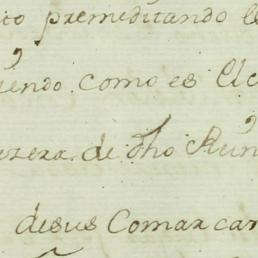 ito premeditando le
iendo como es el c
ezera de dho Reyn
desus Comarcan